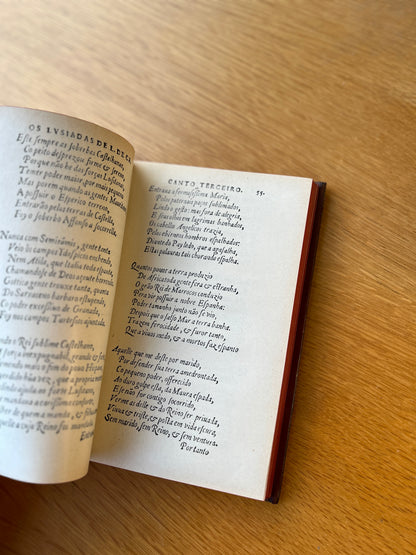 OS LVSIADAS DE L. DE CA
Este sempre as soberbas Castelhanas,
Co peito desprezou firme & sereno,
Porque não he das forças Lusitanas,
Temer poder maior, que mais pequen
Mas porem quando as gentes Maurita
A possuir o Esperico terreno
Entrar as terras de Castella
Foy o soberbo Affonso a socorrella
Nunca com Semirâmis, gente tanta
Veio os campos Idaspicos enchendo
Nem Atila, que Italia toda espanta
Chamandose de Deus açoute horrendo
Gottica gente trouxe tanta, quanta
Do Sarraceno barbaro estupendo,
excessivo de Granada,
Foy nos campos Tartesios ajuntada
o Rei sublime Castelhano
força inexpugnabil, grande &
mais o fim do povo Hispano
hũa vez, que a propria
força Lusitano
a molher
o Reino
CANTO TERCEIRO. 55.
Entraua a fermosissima Maria,
Polos paternais paços sublimados,
Lindo o gesto: mas fora de alegria,
E seus olhos em lagrimas banhados,
Os cabellos Angelicos trazia,
Pelos eburneos hombros espalhados:
Diante do Pay ledo, que a agasalha,
Estas palauras tais chorando espalha.
Quantos pouos a terra produzio
De Africa toda gente fera & estranha,
O grão Rei de Marrocos conduzio
Pera vir possuir a nobre Espanha:
Poder tamanho junto não se vio,
Despois que o salso Mar a terra banha.
Trazem ferocidade, & furor tanto,
Que a viuos medo, & a mortos faz espanto
Aquelle que me deste por marido,
Por defender sua terra amedrontada,
Co pequeno poder, offerecido
Ao duro golpe esta, da Maura espada,
E se não for contigo socorrido,
Verme as delle & do Reino ser priuada,
Viuua & triste, & posta em vida escura,
Sem marido, sem Reino, & sem ventura.
Portanto